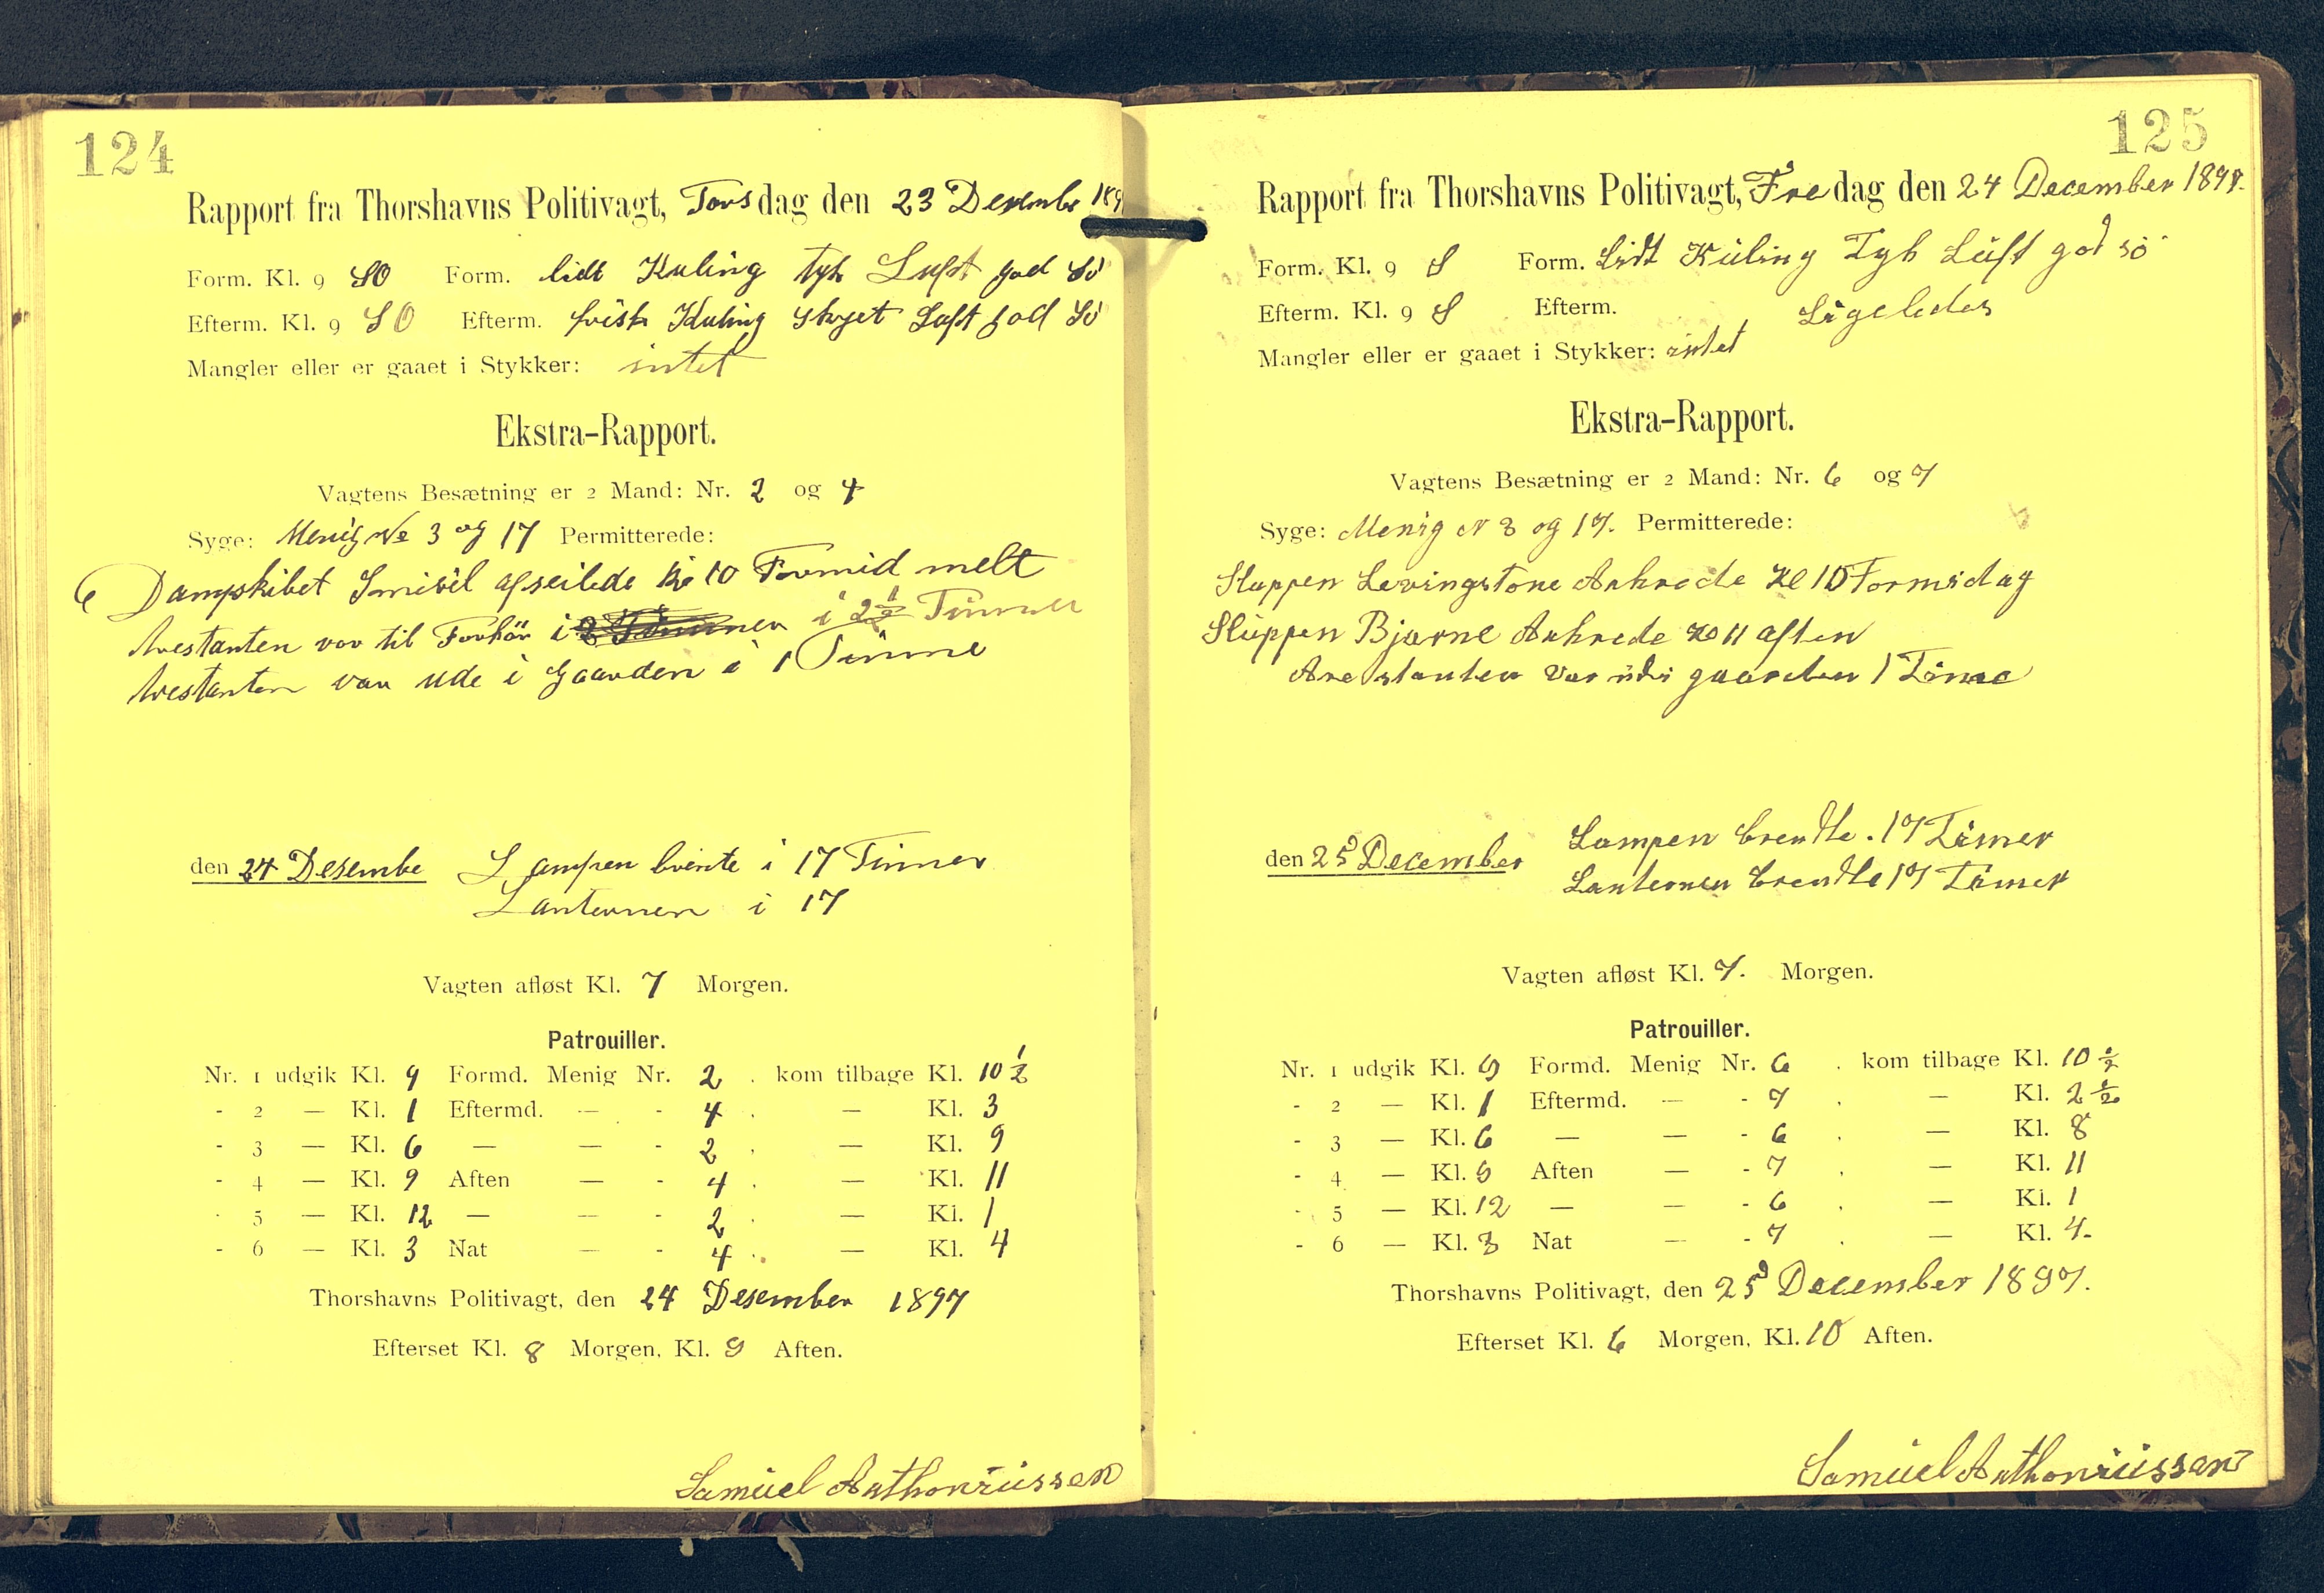 124
Rapport fra Thorshavns Politivagt, Torsdag den 23 Desembe 189
Form. Kl. 9 SO Form. lidt Kuling tyk Luft god Sö
Efterm. Kl. 9 SO Efterm. frisk Kuling skyet Luft god Sö
Mangler eller er gaaet i Stykker: intet
Ekstra-Rapport.
Vagtens Besætning er 2 Mand: Nr. 2 og 4
Syge: Menig No 3 og 17 Permitterede:
Dampskibet Smiril afseilede Kl 10 Formid melt
Arestanten var til Forhör i 2 Timmer i 2 1/2 Timmer
Arestanten var ude i Gaarden i 1 Timme
den 24 Desembe Lampen brente i 17 Timer
Lanternen i 17
Vagten afløst Kl. 7 Morgen.
Patrouiller.
Nr. 1 udgik Kl. 9 Formd. Menig Nr. 2 . kom tilbage Kl. 10 1/2
- 2 — Kl. 1 Eftermd. — - 4 . — Kl. 3
- 3 — Kl. 6 — — - 2 . — Kl. 9
- 4 — Kl. 9 Aften — - 4 . — Kl. 11
- 5 — Kl. 12 — — - 2 . — Kl. 1
- 6 — Kl. 3 Nat — - 4 . — Kl. 4
Thorshavns Politivagt, den 24 Desember 1897
Efterset Kl. 8 Morgen, Kl. 9 Aften.
Samuel Anthoniussen
125
Rapport fra Thorshavns Politivagt, Fredag den 24 December 1897.
Form. Kl. 9 S Form. Lidt Kuling Tyk Luft god sö
Efterm. Kl. 9 S Efterm. Ligeledes
Mangler eller er gaaet i Stykker: intet
Ekstra-Rapport.
Vagtens Besætning er 2 Mand: Nr. 6 og 7
Syge: Menig N 3 og 17. Permitterede:
Sluppen Levingstone Ankrede Kl 10 Formidag
Sluppen Bjarne Ankrede Kl 11 aften
Arestanten var udi gaarden 1 Time
den 25 December Lampen brendte . 17 Timer
Lanternen brendte 17 Timer
Vagten afløst Kl. 7. Morgen.
Patrouiller.
Nr. 1 udgik Kl. 9 Formd. Menig Nr. 6 . kom tilbage Kl. 10 1/2
- 2 — Kl. 1 Eftermd. — - 7 . — Kl. 2 1/2
- 3 — Kl. 6 — — - 6 . — Kl. 8
- 4 — Kl. 9 Aften — - 7 . — Kl. 11
- 5 — Kl. 12 — — - 6 . — Kl. 1
- 6 — Kl. 3 Nat — - 7 . — Kl. 4.
Thorshavns Politivagt, den 25 December 1897.
Efterset Kl. 6 Morgen, Kl. 10 Aften.
Samuel Anthoniussen